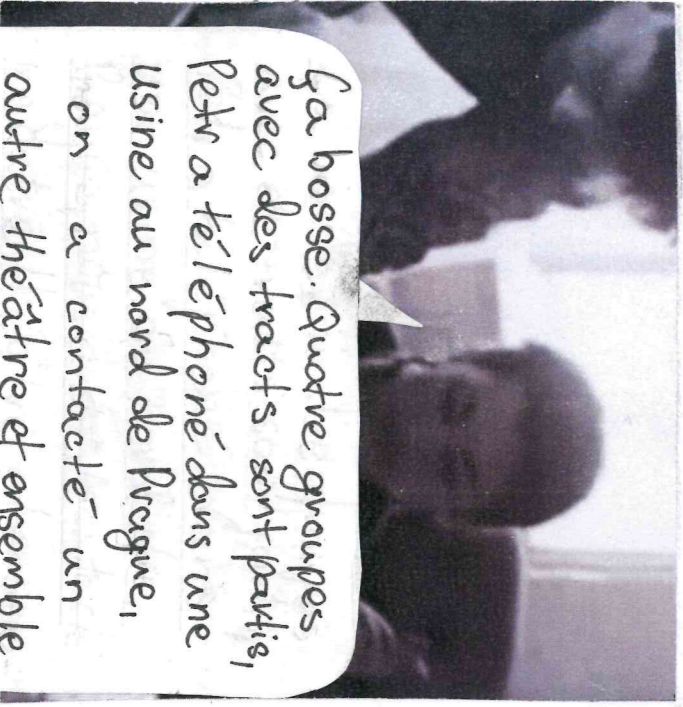 Ça bosse. Quatre groupes
avec des tracts sont partis,
Petr a téléphoné dans une
usine au nord de Prague,
on a contacté un
autre théâtre et ensemble